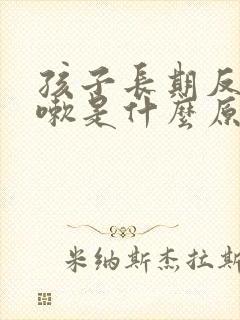 孩子長期反
嗽是什麼原
米纳斯杰拉斯